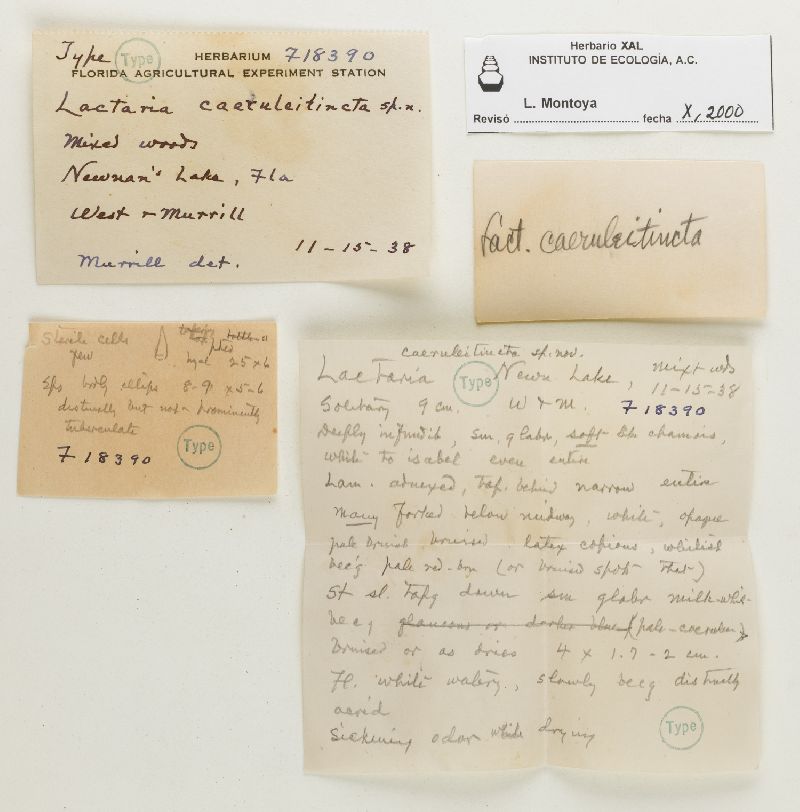 Type Type HERBARIUM 718390
FLORIDA AGRICULTURAL EXPERIMENT STATION
Lactaria caeruleitincta sp. n.
Mixed woods
Newnan's Lake, Fla
West & Murrill
11-15-38
Murrill det.
Herbario XAL
INSTITUTO DE ECOLOGÍA, A.C.
L. Montoya
Revisó fecha X, 2000
Lact. caeruleitincta
Sterile cells
few
hyal 25 x 6
Sps brdly ellips 8-9 x 5-6
distinctly but not prominently
tuberculate
718390 Type
caeruleitincta sp. nov.
Lactaria Type Newn Lake, mixt wds
11-15-38
Solitary 9 cm. W & M. 718390
Deeply infundib, sm, glabr, soft like chamois,
white to isabel even entire
Lam. adnexed, tap. behind narrow entire
many forked below midway, white, opaque
pale bruised latex copious, whitish
bec'g pale red-brn (or bruised spots that)
St sl. tap'g down sm glabr milk-whit-
bec'g glaucous or darker blue (pale-caerulean)
bruised or as dries 4 x 1.7-2 cm.
Fl. white watery, slowly bec'g distinctly
acrid
Sickening odor while drying Type